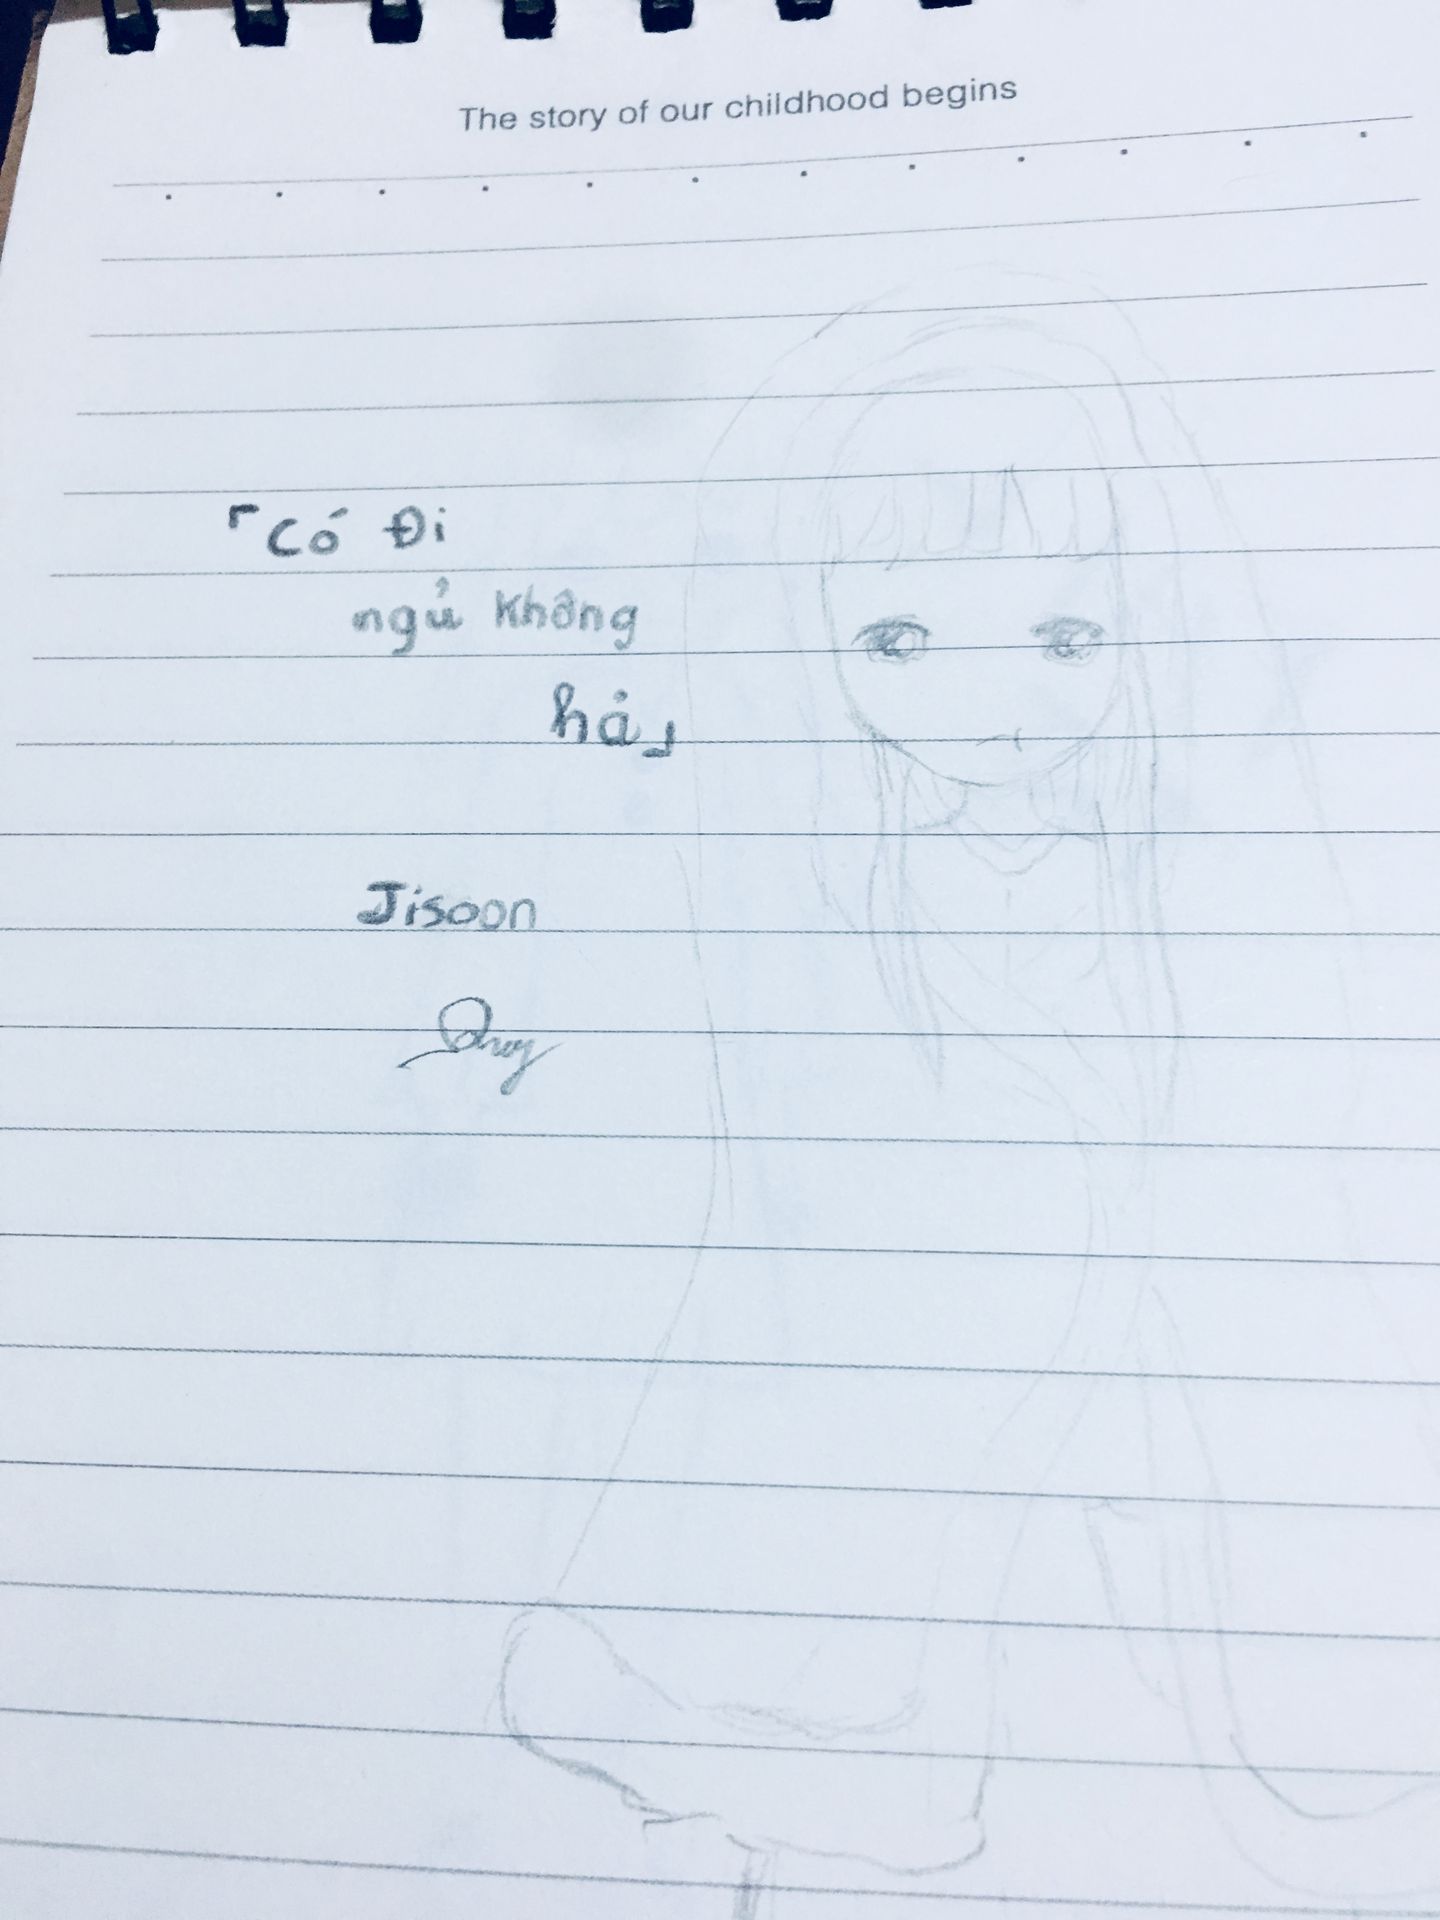 The story of our childhood begins
「Có Đi
ngủ không
hả」
Jisoon